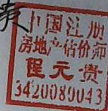 中国注册
房地产估价师
㑆元贵
3420080043